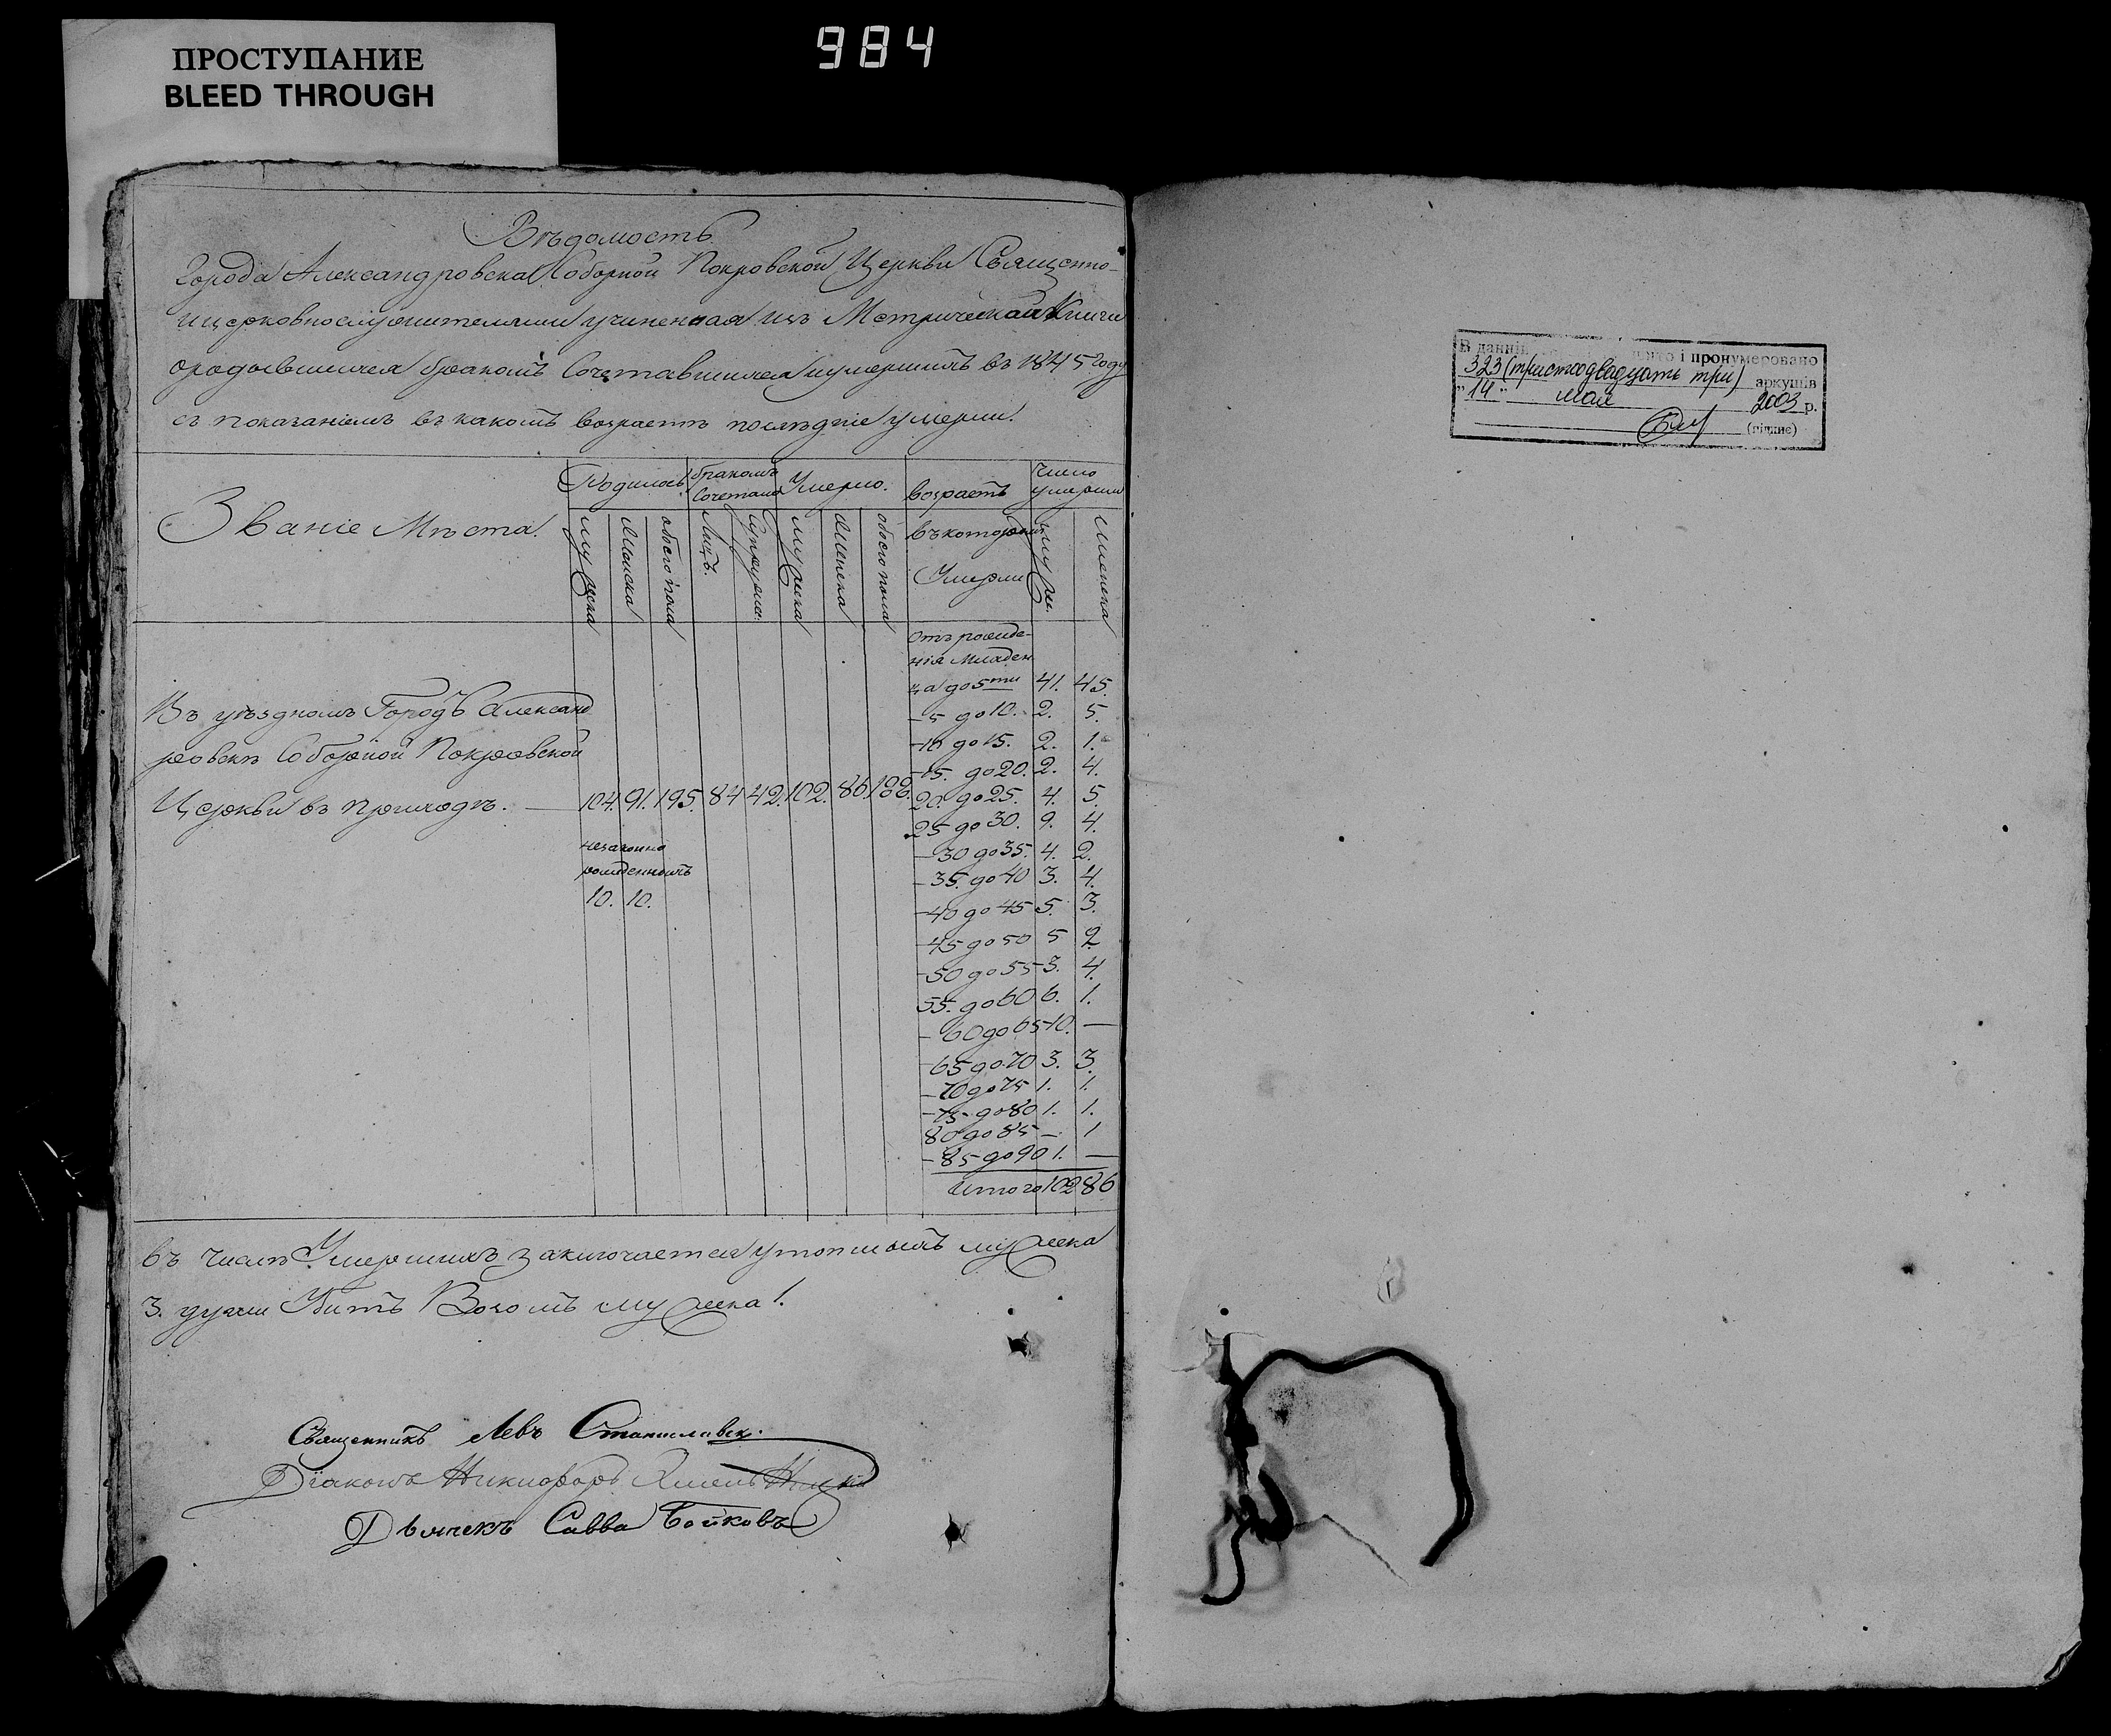 ПРОСТУПАНИЕ
BLEED THROUGH
984
Вѣдомость
Города Александровска Соборной Покровской Церкви Священно-
и церковнослужителями учиненная изъ Метрической Книги
о родившихся бракомъ Сочетавшихся и умершихъ въ 1845 году
съ показаніемъ въ какомъ возрастѣ послѣдніе умерли.
Званіе Мѣста.
Родилось
бракомъ Сочетано
Умерло.
возрастъ въ которомъ Умерли
Число умерших
Мужска
Женска
обоего пола
Лицъ.
Супруж.
Мужска
Женска
обоего пола
Муж.
Женска
Отъ рожде-
нія Младен
ца до 5ти 41. 45.
- 5 до 10. 2. 5.
- 10 до 15. 2. 1.
- 15. до 20. 2. 4.
20. до 25. 4. 5.
25 до 30. 9. 4.
- 30 до 35. 4. 2.
- 35. до 40 3. 4.
- 40 до 45 5. 3.
- 45 до 50 5 2
- 50 до 55 3. 4.
55. до 60 6. 1.
- 60 до 65 10. —
- 65 до 70 3. 3.
- 70 до 75 1. 1.
- 75 до 80 1. 1.
80 до 85 — 1
- 85 до 90 1. —
Итого 102 86
Въ уѣздномъ Городѣ Александ
ровскѣ Соборной Покровской
Церкви въ приходѣ. — 104. 91. 195. 84 42. 102. 86. 188.
незаконно
рожденныхъ
10. 10.
Въ числѣ Умершихъ заключается утопшихъ мужеска
3. души Убитъ Возомъ мужеска 1.
Священникъ Левъ Станиславск.
Діаконъ Никифоръ
Дьячекъ Савва Бойковъ
В даній і пронумеровано
323 (тристадвадцать три) аркушів
"14" мая 2003 р.
(підпис)